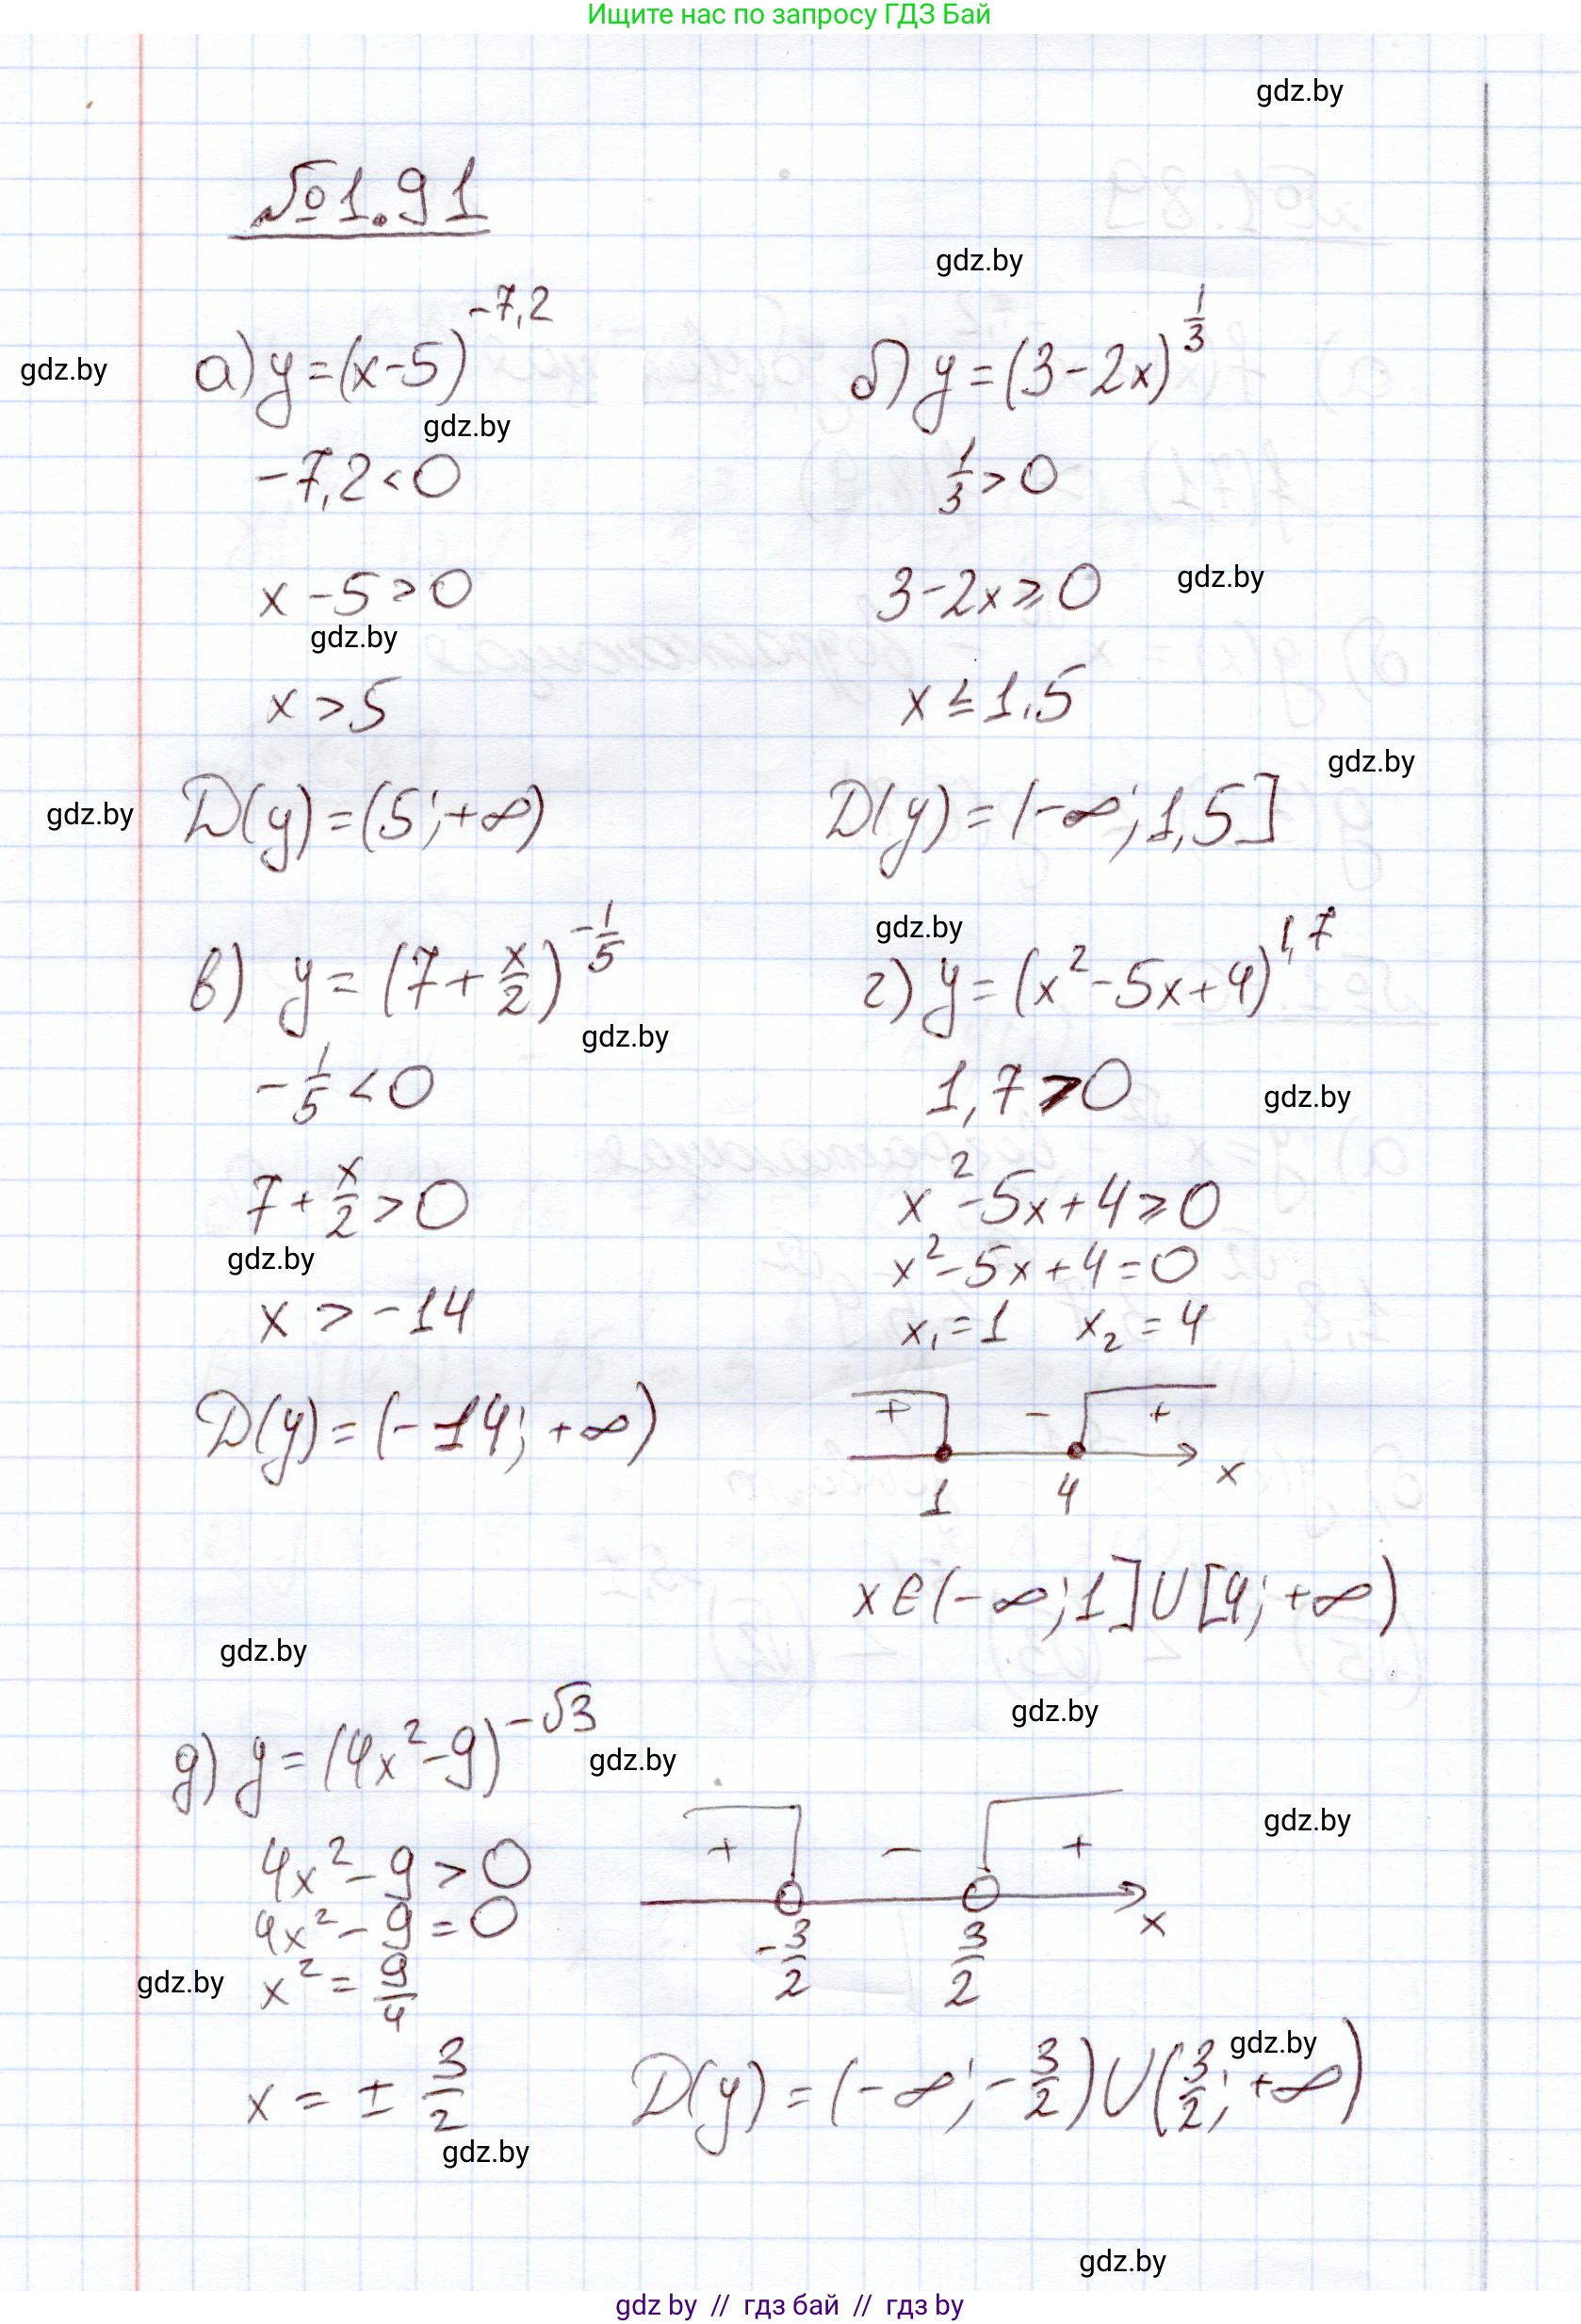 Ищите нас по запросу ГДЗ Бай
gdz.by
№1.91
gdz.by
а) y=(x-5)^{-7,2}
б) y=(3-2x)^{\frac{1}{3}}
gdz.by
gdz.by
-7,2<0
\frac{1}{3}>0
x-5>0
3-2x≥0
gdz.by
gdz.by
x>5
x≤1,5
gdz.by
gdz.by
D(y)=(5;+∞)
D(y)=(-∞;1,5]
gdz.by
в) y=(7+\frac{x}{2})^{-\frac{1}{5}}
г) y=(x²-5x+4)^{1,7}
gdz.by
-\frac{1}{5}<0
1,7>0
gdz.by
7+\frac{x}{2}>0
x²-5x+4≥0
gdz.by
x²-5x+4=0
x>-14
x₁=1 x₂=4
D(y)=(-14;+∞)
+ - +
x
1 4
x∈(-∞;1]∪[4;+∞)
gdz.by
gdz.by
д) y=(4x²-9)^{-√3}
gdz.by
gdz.by
4x²-9>0
+ - +
4x²-9=0
x
-\frac{3}{2} \frac{3}{2}
gdz.by
x²=\frac{9}{4}
gdz.by
x=±\frac{3}{2}
D(y)=(-∞;-\frac{3}{2})∪(\frac{3}{2};+∞)
gdz.by
gdz.by
gdz by // гдз бай // гдз by